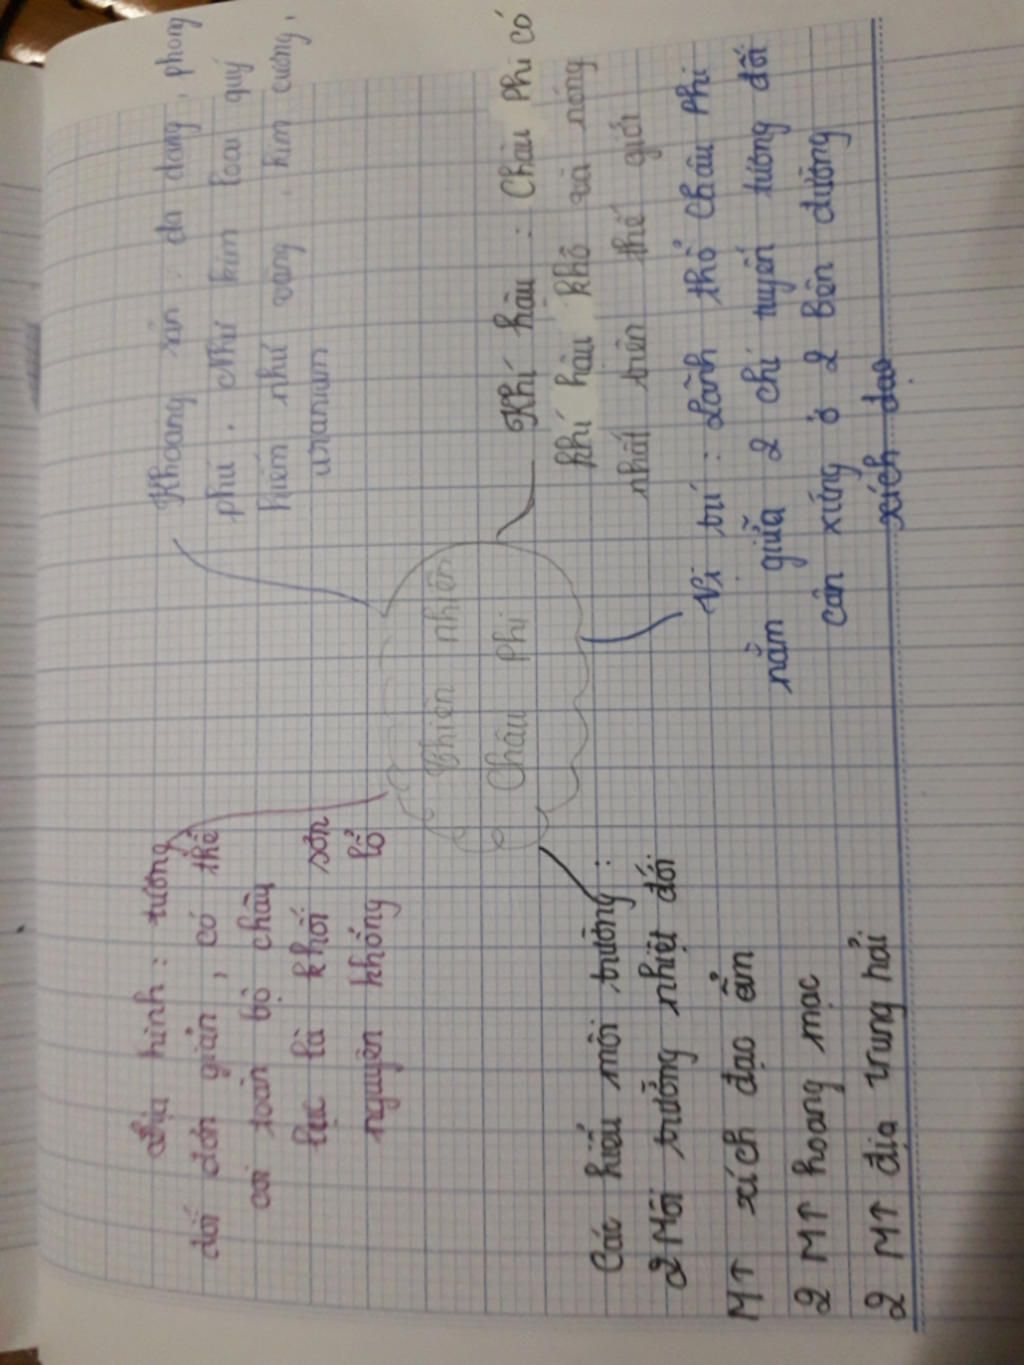 Thiên nhiên
Châu Phi
Địa hình : tương
đối đơn giản , có thể
coi toàn bộ châu
lục là khối sơn
nguyên khổng lồ
Khoáng sản : đa dạng , phong
phú . Như kim loại quý
hiếm như vàng . kim cương ,
uranium
Khí hậu : Châu Phi có
khí hậu khô và nóng
nhất trên thế giới
Vị trí : Lãnh thổ Châu Phi
nằm giữa 2 chí tuyến tương đối
cân xứng ở 2 Bên đường
xích đạo
Các kiểu môi trường :
2 Môi trường nhiệt đới
MT xích đạo ẩm
2 MT hoang mạc
2 MT địa trung hải